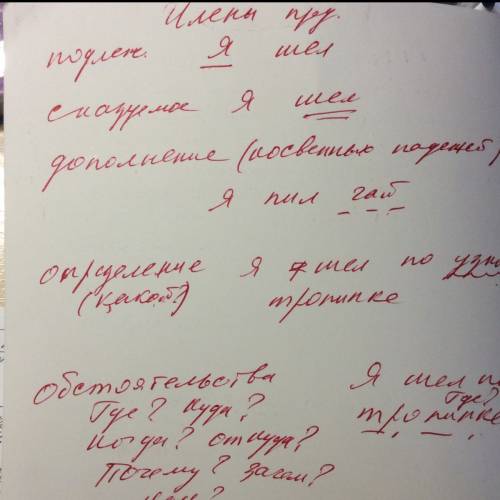 Члены пр.
подлеж. Я шел
сказуемое Я шел
дополнение (косвенных падежей)
Я пил чай
определение Я шел по
(какой?) тропинке
обстоятельства Я шел
Где? Куда? Где?
Когда? откуда? тропинке
Почему? зачем?